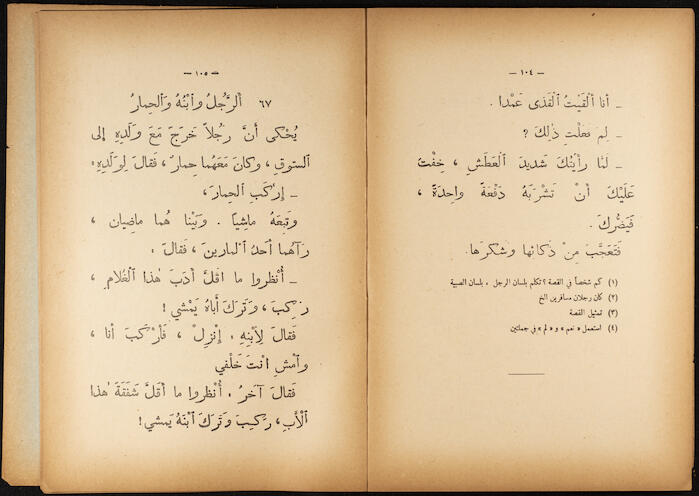 — ١٠٤ —
_ أنا ألْقَيْتُ ٱلْقَذى عَمْدا .
_ لِمَ فَعَلْتِ ذٰلِكَ ؟
_ لَمّا رأَيْتُكَ شَديدَ ٱلْعَطَشِ ، خِفْتُ
عَلَيْكَ أنْ تَشْرَبَهُ دَفْعَةً واحِدَةً ،
فَيَضُرَّكَ .
فَتَعَجَّبَ مِنْ ذَكائها وشَكَرَها .
(١) كم شخصاً في القصة ؟ تكلم بلسان الرجل . بلسان الصبية
(٢) كان رجلان مسافرين الخ
(٣) تمثيل القصة
(٤) استعمل « نعم » و « لم » في جملتين
— ١٠٥ —
٦٧ ٱلرَّجُلُ وٱبْنُهُ وٱلْحِمارُ
يُحْكى أنَّ رَجُلاً خَرَجَ مَعَ وَلَدِهِ إلى
ٱلسّوقِ ، وكانَ مَعَهُما حِمارٌ ، فَقالَ لِوَلَدِهِ :
_ إرْكَبِ ٱلْحِمارَ ،
وتَبِعَهُ ماشِياً . وبَيْنا هُما ماضِيان ،
رَآهُما أحَدُ ٱلْمارّينَ ، فَقالَ .
_ أُنْظُروا ما أقَلَّ أدَبَ هٰذا ٱلْغُلامِ ،
رَكِبَ ، وتَرَكَ أباهُ يَمْشي !
فَقالَ لِٱبْنِهِ : إنْزِلْ ، فَأرْكَبَ أنا ،
وٱمْشِ أنْتَ خَلْفي
فَقالَ آخَرُ . أُنْظُروا ما أقَلَّ شَفَقَةَ هٰذا
ٱلْأَبِ ، رَكِبَ وتَرَكَ ٱبْنَهُ يَمْشي !